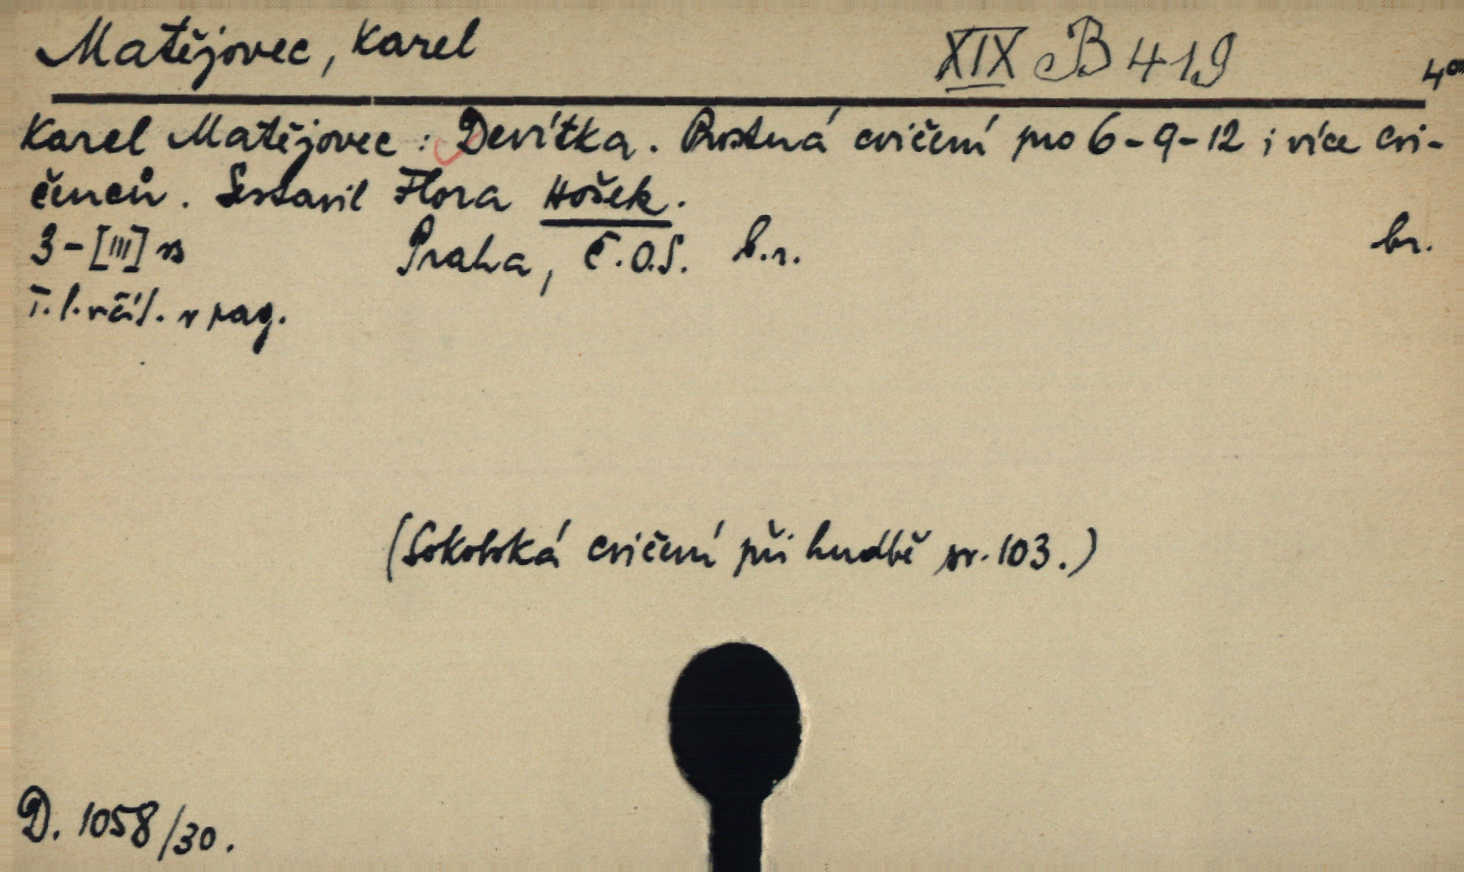 Matějovec, Karel XIX B 419 4°
Karel Matějovec: Devítka. Prostná cvičení pro 6-9-12 i více cvi-
čenců. Sestavil Flora Hošek.
3-[III] s Praha, Č.O.S. b.r. br.
T.l. včísl. v pag.
(Sokolská cvičení při hudbě sv. 103.)
D. 1058/30.